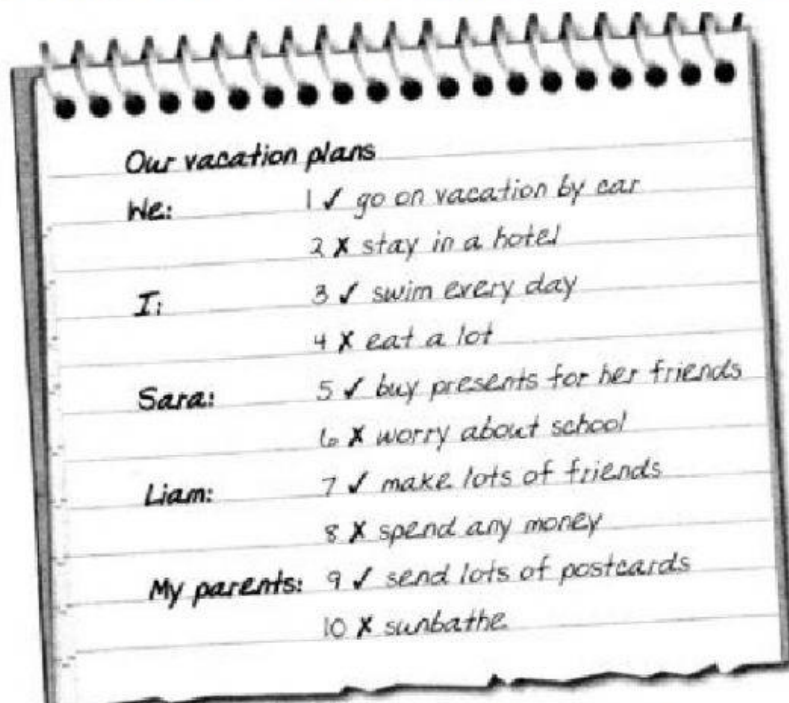 Our vacation plans
We: 1 ✓ go on vacation by car
2 ✗ stay in a hotel
I: 3 ✓ swim every day
4 ✗ eat a lot
Sara: 5 ✓ buy presents for her friends
6 ✗ worry about school
Liam: 7 ✓ make lots of friends
8 ✗ spend any money
My parents: 9 ✓ send lots of postcards
10 ✗ sunbathe